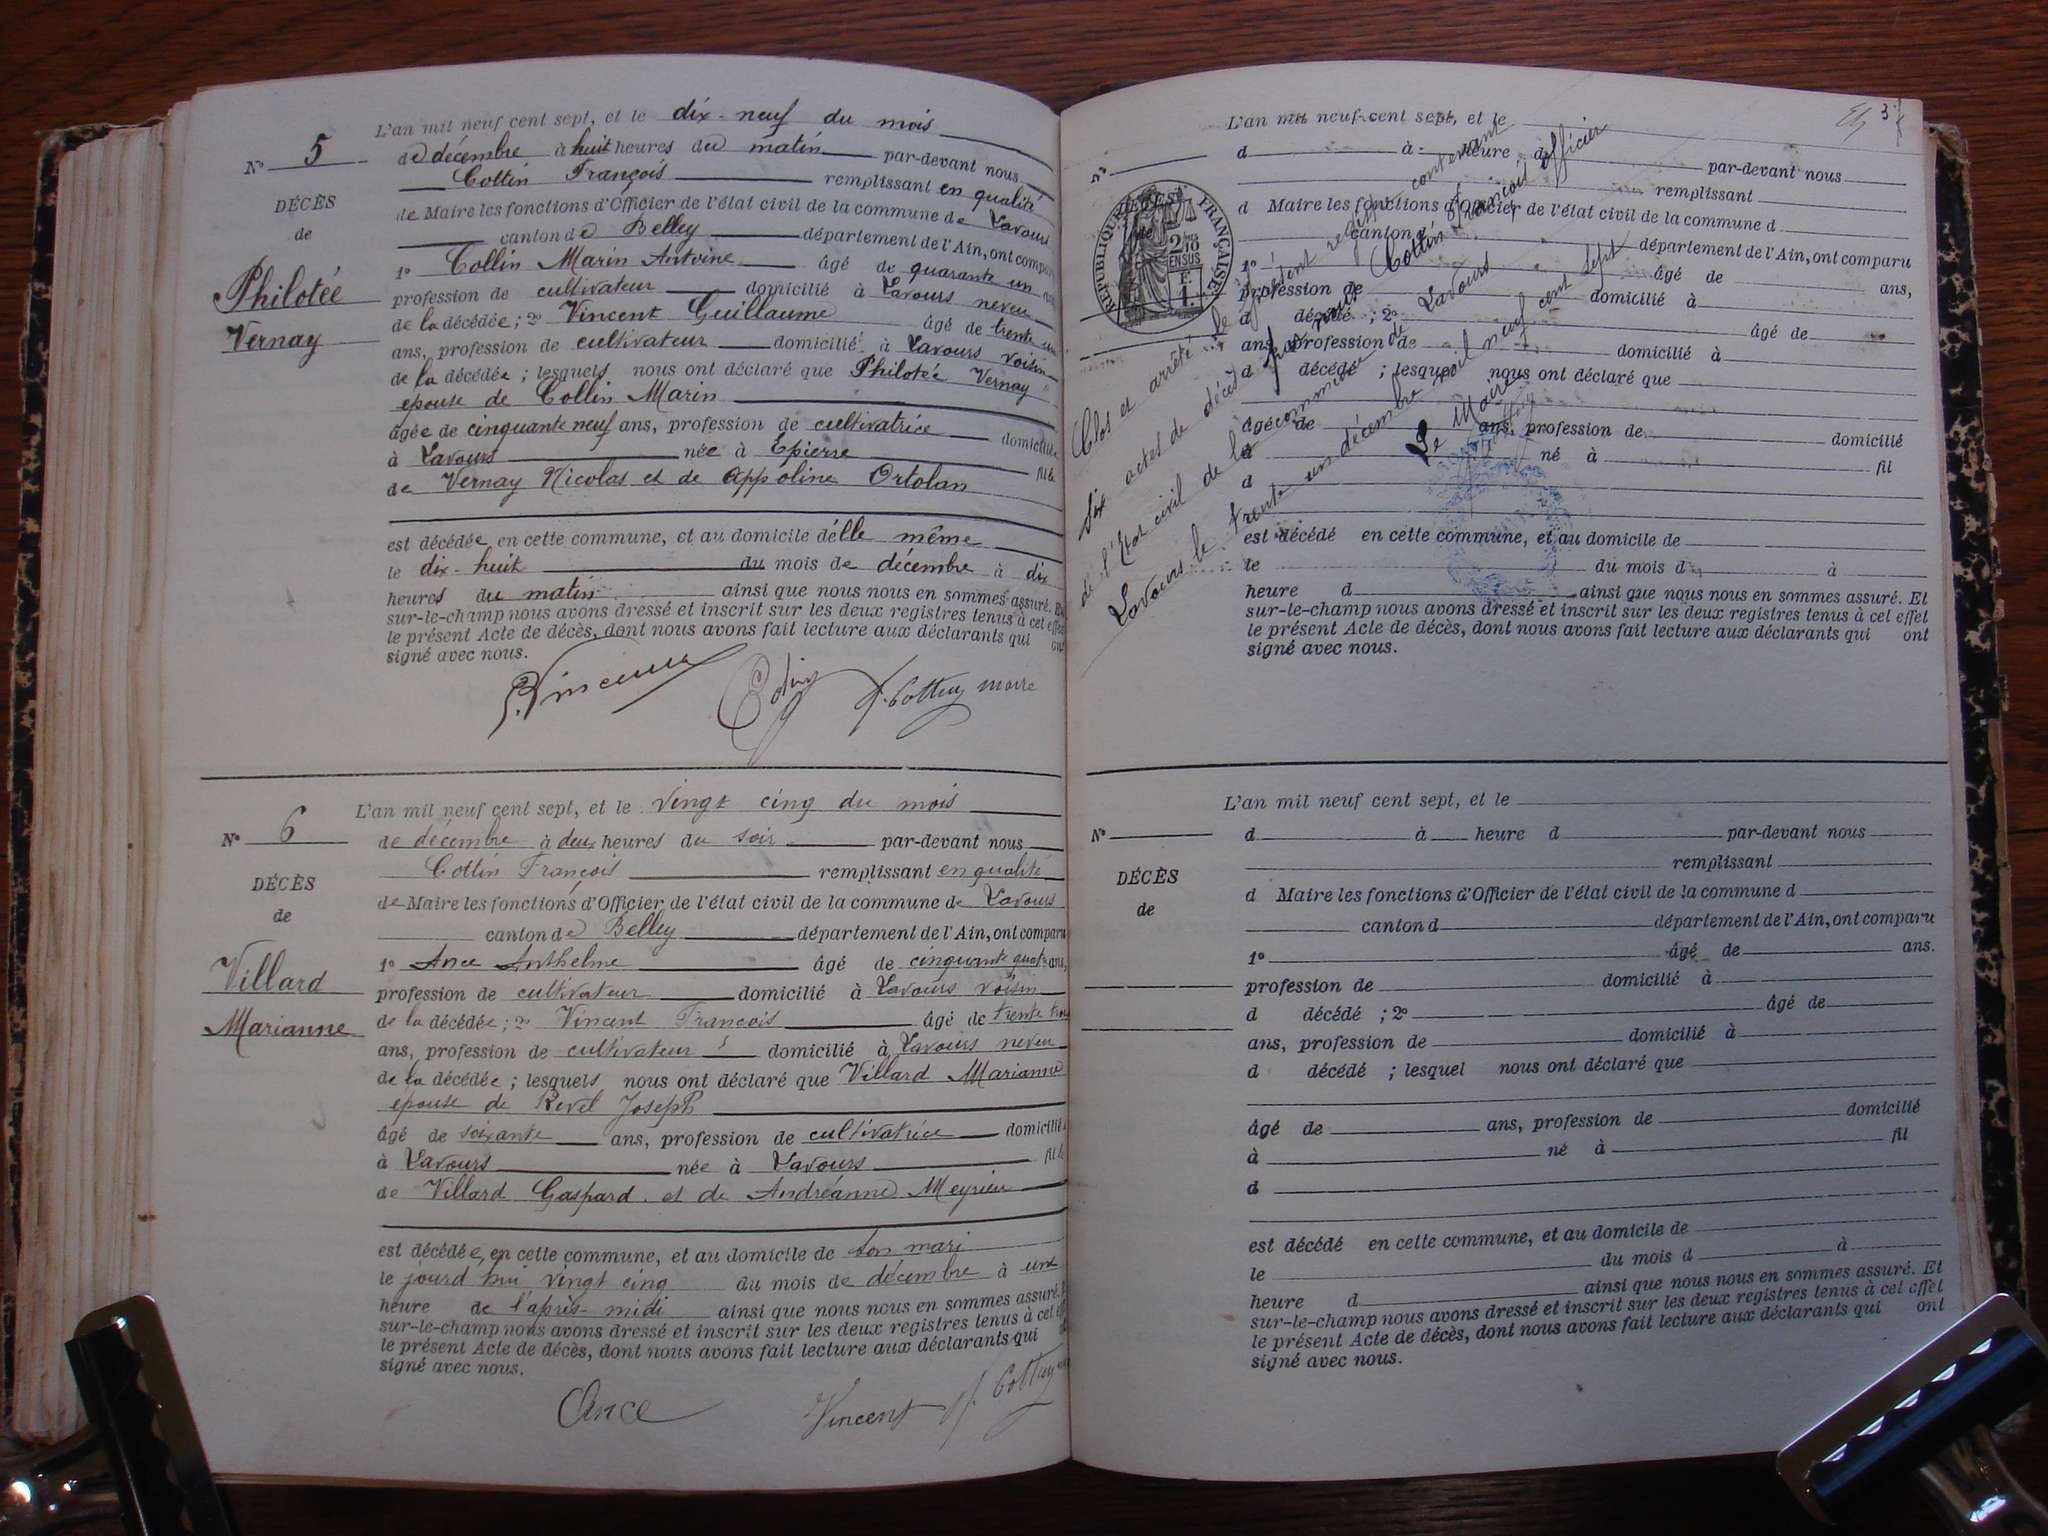 L'an mil neuf cent sept, et le dix-neuf du mois
N° 5 de décembre à huit heures du matin par-devant nous
Cottin François remplissant en qualité
DÉCÈS
de Maire les fonctions d'Officier de l'état civil de la commune de Lavours
de
canton de Belley département de l'Ain, ont comparu
1° Collin Marin Antoine âgé de quarante un ans
Philotée
profession de cultivateur domicilié à Lavours neveu
de la décédée; 2° Vincent Guillaume âgé de trente un
Vernay
ans, profession de cultivateur domicilié à Lavours voisin
de la décédée; lesquels nous ont déclaré que Philotée Vernay
épouse de Collin Marin
âgée de cinquante neuf ans, profession de cultivatrice domiciliée
à Lavours née à Epierre fille
de Vernay Nicolas et de Appoline Ortolan
est décédée en cette commune, et au domicile d'elle même
le dix-huit du mois de décembre à dix
heures du matin ainsi que nous nous en sommes assuré. Et
sur-le-champ nous avons dressé et inscrit sur les deux registres tenus à cet effet
le présent Acte de décès, dont nous avons fait lecture aux déclarants qui ont
signé avec nous.
Vincent Colin f. Cottin maire
L'an mil neuf cent sept, et le vingt cinq du mois
N° 6 de décembre à deux heures du soir par-devant nous
Cottin François remplissant en qualité
DÉCÈS
de Maire les fonctions d'Officier de l'état civil de la commune de Lavours
de
canton de Belley département de l'Ain, ont comparu
1° Ance Anthelme âgé de cinquante quatre ans,
Villard
profession de cultivateur domicilié à Lavours voisin
Marianne
de la décédée; 2° Vincent François âgé de trente trois
ans, profession de cultivateur domicilié à Lavours neveu
de la décédée; lesquels nous ont déclaré que Villard Marianne
épouse de Revel Joseph
âgé de soixante ans, profession de cultivatrice domiciliée
à Lavours née à Lavours fille
de Villard Gaspard et de Andréanne Meyrieu
est décédée en cette commune, et au domicile de son mari
le jourd'hui vingt cinq du mois de décembre à une
heure de l'après-midi ainsi que nous nous en sommes assuré.
sur-le-champ nous avons dressé et inscrit sur les deux registres tenus à cet
le présent Acte de décès, dont nous avons fait lecture aux déclarants qui
signé avec nous.
Ance Vincent f. Cottin
3
L'an mil neuf cent sept, et le
N° d à heure d par-devant nous
remplissant
d Maire les fonctions d'Officier de l'état civil de la commune d
canton d département de l'Ain, ont comparu
1° âgé de ans,
profession de domicilié à
d décédé ; 2° âgé de
ans, profession de domicilié à
d décédé ; lesquel nous ont déclaré que
âgé de ans, profession de domicilié
à né à fil
d
est décédé en cette commune, et au domicile de
le du mois d à
heure d ainsi que nous nous en sommes assuré. Et
sur-le-champ nous avons dressé et inscrit sur les deux registres tenus à cet effet
le présent Acte de décès, dont nous avons fait lecture aux déclarants qui ont
signé avec nous.
RÉPUBLIQUE FRANÇAISE
2/10 EN SUS
Clos et arrêté le présent registre contenant
six actes de décès par nous Cottin François officier
de l'Etat civil de la commune de Lavours
Lavours le trente un décembre mil neuf cent sept
Le Maire
L'an mil neuf cent sept, et le
N° d à heure d par-devant nous
remplissant
DÉCÈS
d Maire les fonctions d'Officier de l'état civil de la commune d
de
canton d département de l'Ain, ont comparu
1° âgé de ans.
profession de domicilié à
d décédé ; 2° âgé de
ans, profession de domicilié à
d décédé ; lesquel nous ont déclaré que
âgé de ans, profession de domicilié
à né à fil
d
est décédé en cette commune, et au domicile de
le du mois d à
heure d ainsi que nous nous en sommes assuré. Et
sur-le-champ nous avons dressé et inscrit sur les deux registres tenus à cet effet
le présent Acte de décès, dont nous avons fait lecture aux déclarants qui ont
signé avec nous.